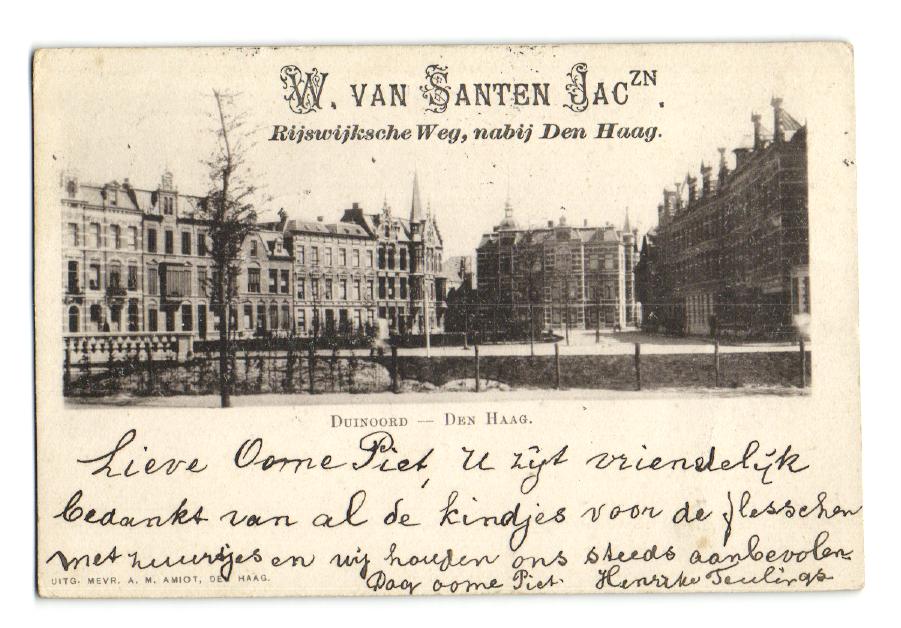 W. VAN SANTEN JAC^ZN.
Rijswijksche Weg, nabij Den Haag.
DUINOORD — DEN HAAG.
Lieve Oome Piet, U zijt vriendelijk
bedankt van al de kindjes voor de flesschen
met zuurtjes en wij houden ons steeds aanbevolen.
UITG. MEVR. A. M. AMIOT, DEN HAAG.
Dag oome Piet. Henrike Teulings